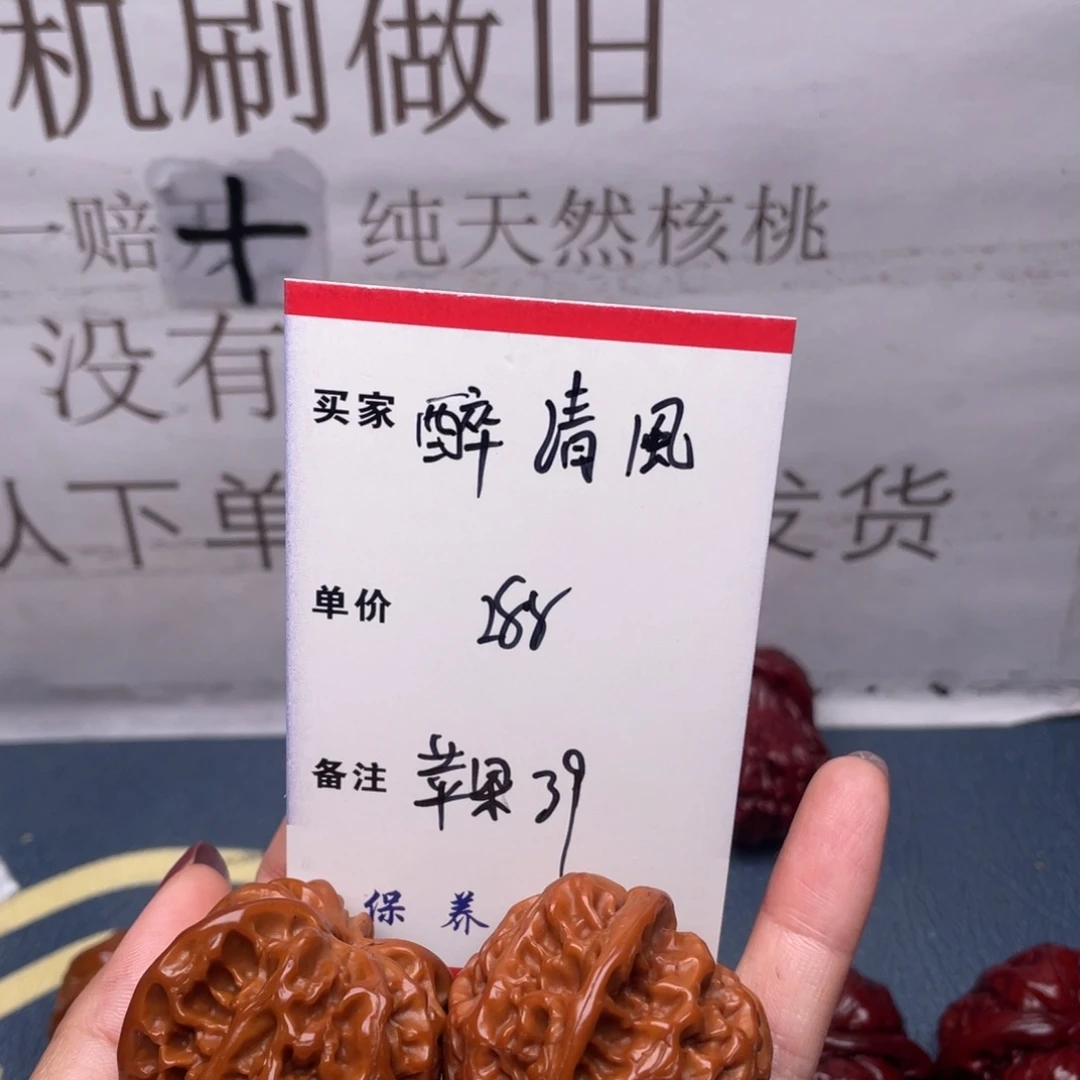 机刷做旧
一赔十 纯天然核桃
没有
下单 发货
买家 醉清風
单价 288
备注 苹果39
保养